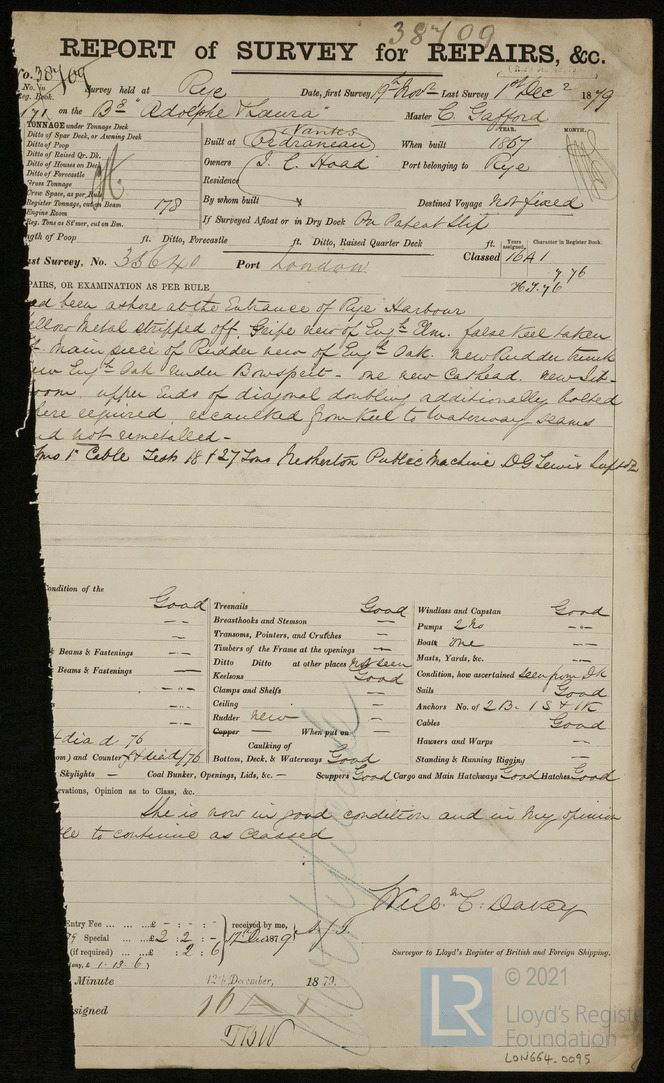 38709
REPORT of SURVEY for REPAIRS, &c.
No. 38709
No. in Reg. Book. Survey held at Rye Date, first Survey 19th Novr Last Survey 1st Decr 1879
171 on the Bg "Adolphe & Laura" Master C. Gafford
TONNAGE under Tonnage Deck
Ditto of Spar Deck, or Awning Deck
Ditto of Poop
Ditto of Raised Qr. Dk.
Ditto of Houses on Deck
Ditto of Forecastle
Gross Tonnage
Crew Space, as per Rule
Register Tonnage, cut on Beam 178
Engine Room
Reg. Tons as St'mer, cut on Bm.
Nantes YEAR. MONTH.
Built at When built 1867
Owners J. C. Hoad Port belonging to Rye
Residence
By whom built x Destined Voyage Not fixed
If Surveyed Afloat or in Dry Dock On Patent Slip
ngth of Poop ft. Ditto, Forecastle ft. Ditto, Raised Quarter Deck ft.
Years assigned. Character in Register Book.
st Survey, No. 38640 Port London Classed 16 A 1
7.76
PAIRS, OR EXAMINATION AS PER RULE
ad been ashore at the Entrance of Rye Harbour
ellow Metal stripped off. Gripe new of Engh Elm. false keel taken
Main piece of Rudder new of Engh Oak. New Rudder trunk
ew Engh Oak under Bowsprit - one new Cathead. New Jib-
oom. upper Ends of diagonal doubling additionally bolted
here required recaulked from Keel to Waterway seams
nd not remetalled -
ms 1" Cable Tests 18 & 27 Tons Netherton Public Machine D G Lewis Supt
ondition of the
Good Treenails Good Windlass and Capstan Good
Breasthooks and Stemson — Pumps 2 No
Transoms, Pointers, and Crutches — Boats One
Beams & Fastenings Timbers of the Frame at the openings — Masts, Yards, &c.
Beams & Fastenings Ditto Ditto at other places not seen Condition, how ascertained seen from Dk
Keelsons Good Sails Good
Clamps and Shelfs — Anchors No. of 2 B. 1 S & 1 K
Ceiling — Cables Good
Rudder new — Hawsers and Warps
Copper — When put on — Standing & Running Rigging
dia d 76
om) and Counter diad/76 Caulking of Bottoms, Deck, & Waterways Good
Skylights — Coal Bunker, Openings, Lids, &c. — Scuppers Good Cargo and Main Hatchways Good Hatches Good
rvations, Opinion as to Class, &c.
She is now in good condition and in my opinion
le to continue as Classed
Willm C. Davey
Entry Fee £ - : - : -
Special £2 : 2 : -
(if required) : 2 : 6
1 . 13 . 6
received by me,
1879
Surveyor to Lloyd's Register of British and Foreign Shipping.
Minute 12th December, 1879.
signed
LR © 2021
Lloyd's Register
Foundation
LON664-0095